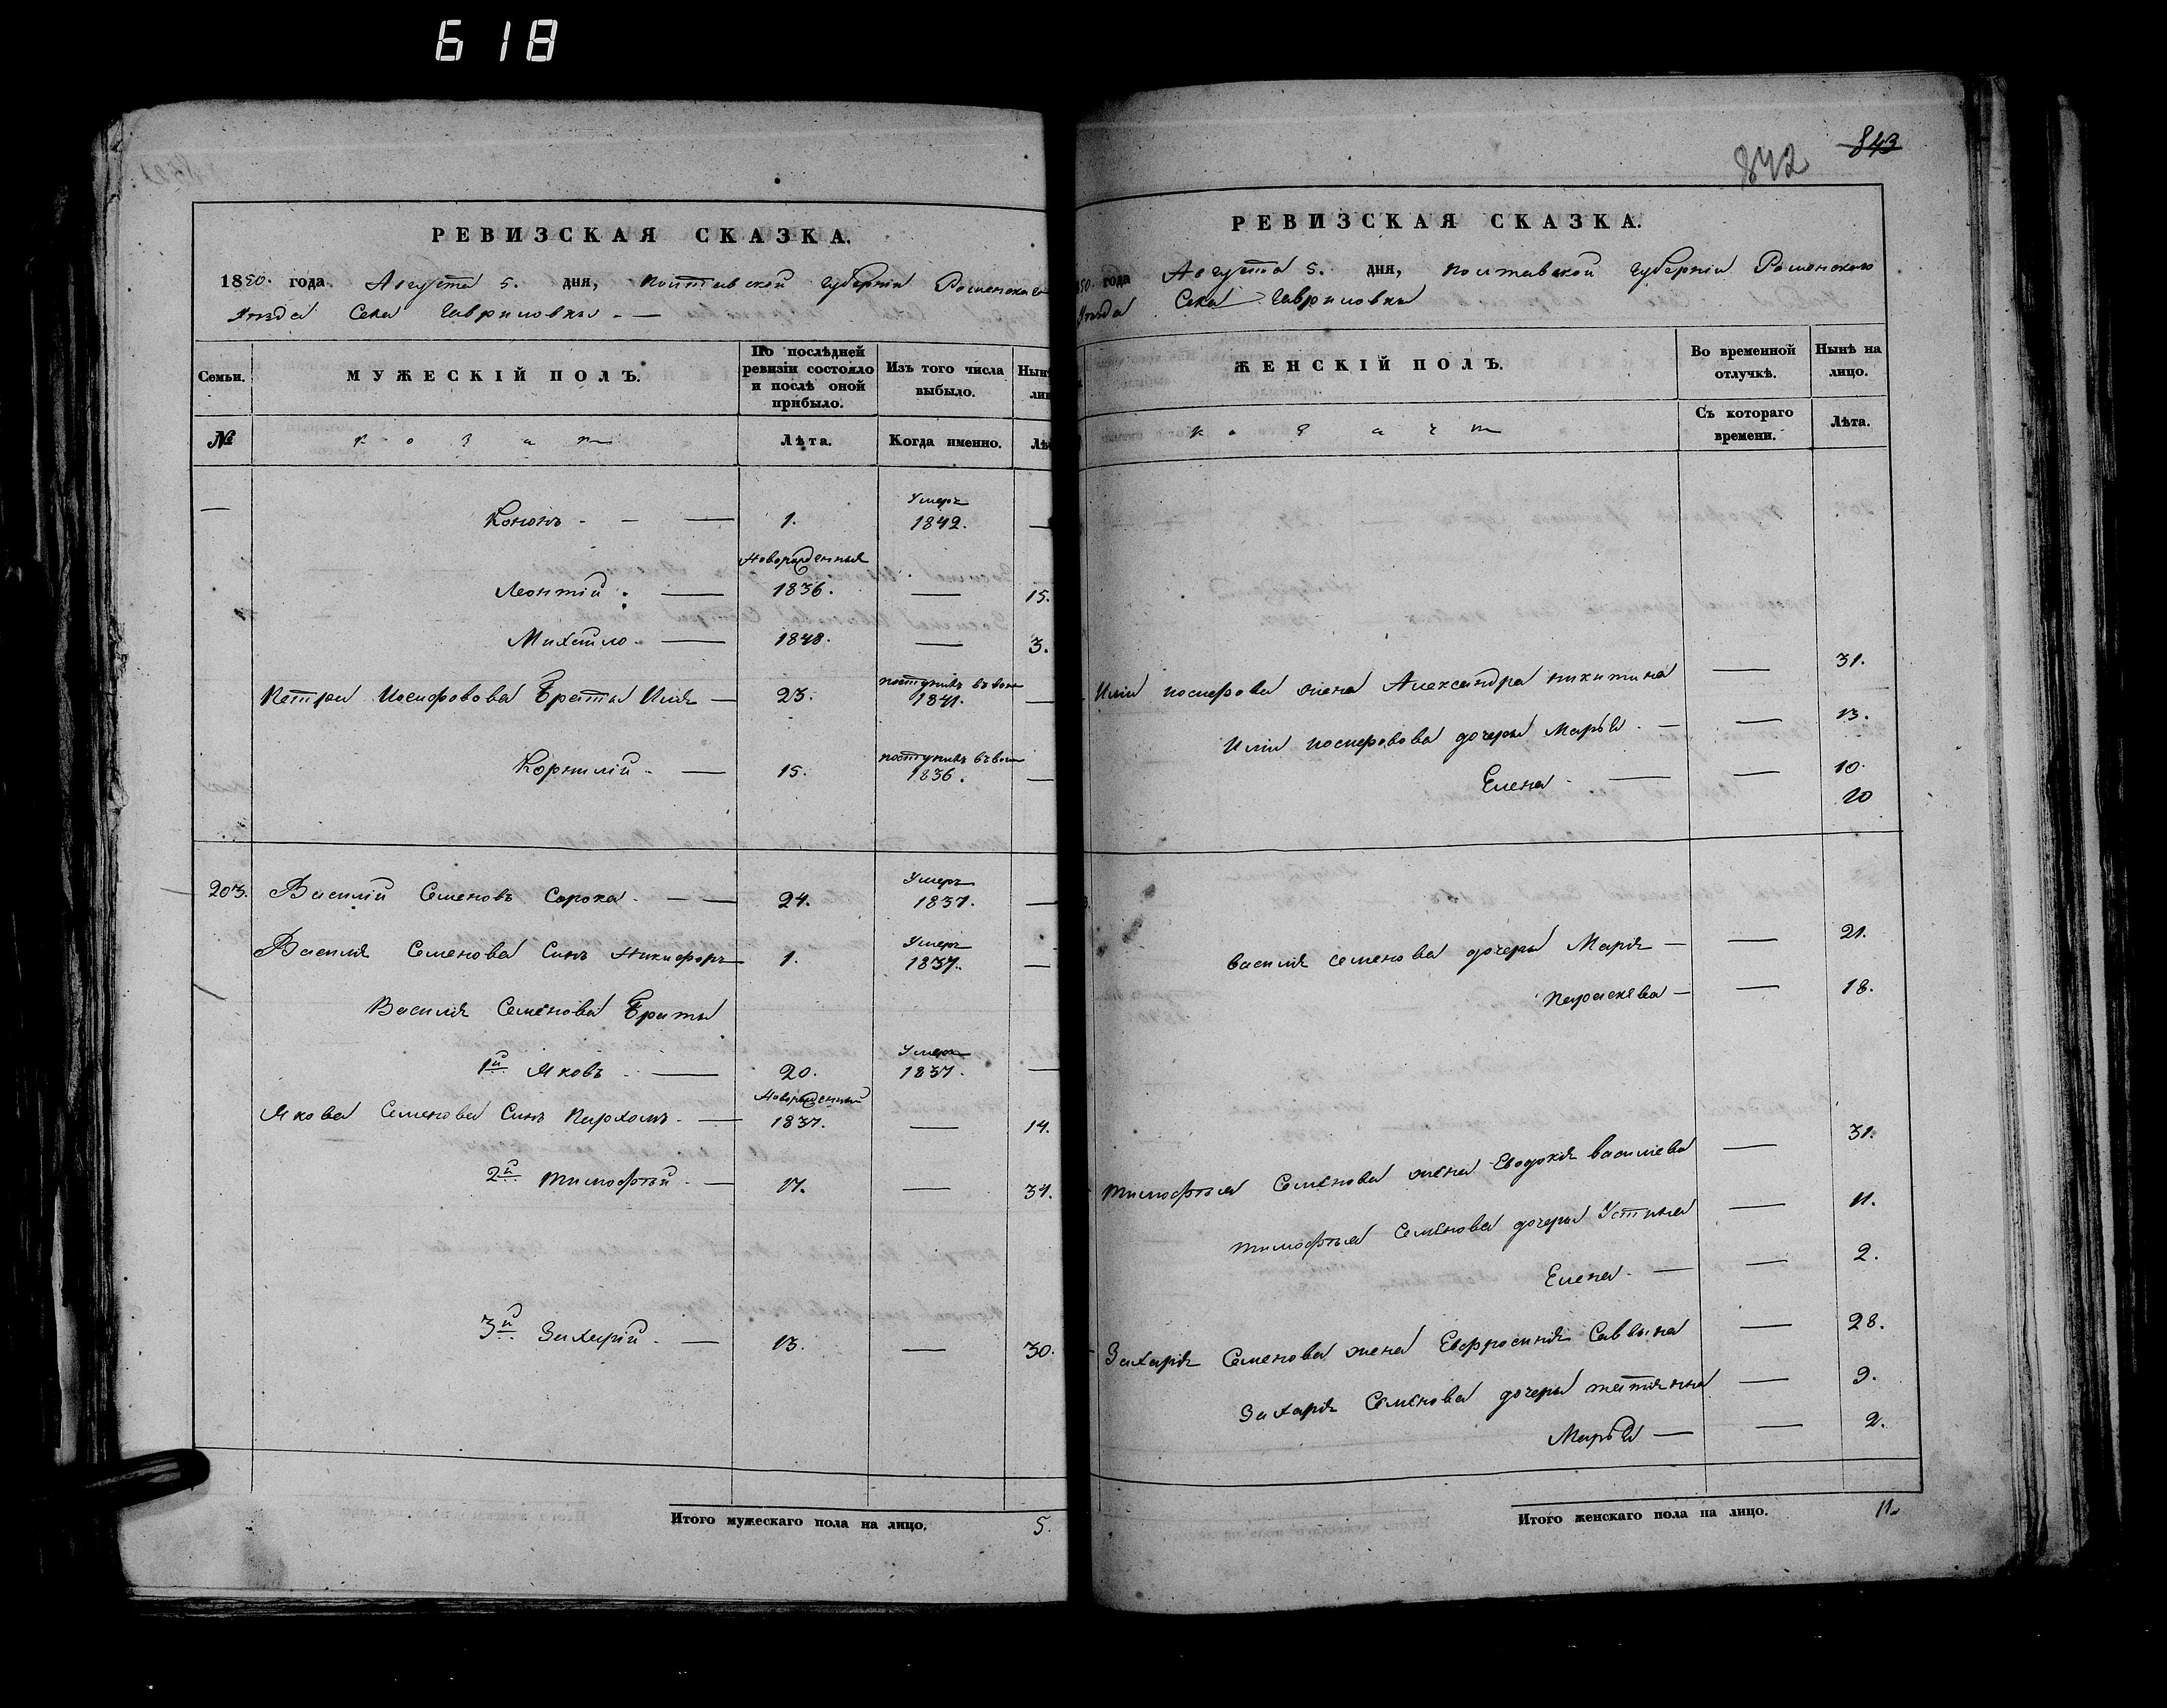 618
РЕВИЗСКАЯ СКАЗКА.
1850. года Августа 5. дня, Полтавской губернии Роменскаго
Уезда Села Гавриловки. —
Семьи.
МУЖЕСКІЙ ПОЛЪ.
По послѣдней ревизіи состояло и послѣ оной прибыло.
Изъ того числа выбыло.
№
Лѣта.
Когда именно.
Кононъ - — 1. Умеръ 1842. —
Новорожденныя
Леонтій — 1836. — 15.
Михайло — 1848. — 3.
Петра Иосифовова Братья Илія — 23. поступилъ въ 1841. —
Корнилій - — 15. поступилъ въ 1836. —
203. Василій Семеновъ Сорока - — 24. Умеръ 1837. —
Василія Семенова Синъ Никифоръ 1. Умеръ 1837. —
Василія Семенова Братья
1й Яковъ — 20. Умеръ 1837. —
Новорожденный
Якова Семенова Синъ Пархомъ - — 1837. — 14.
2й Тимофѣй - — 17. — 34.
3й Захарій - — 13. — 30.
Итого мужескаго пола на лицо. 5.
842 843
РЕВИЗСКАЯ СКАЗКА.
50. года Августа 5. дня, Полтавской губерніи Роменскаго
Уезда Села Гавриловки
ЖЕНСКІЙ ПОЛЪ.
Во временной отлучкѣ.
Нынѣ на лицо.
Съ котораго времени.
Лѣта.
Иліи Иосифова жена Александра Никитина — 31.
Иліи Иосифовова дочеры Марья - — 13.
Елена - — 10.
20
Василія Семенова дочеры Марія — 21.
Параскева — 18.
Тимофѣя Семенова жена Евдокія Васильева — 31.
Тимофѣя Семенова дочеры Устина — 11.
Елена - — 2.
Захарія Семенова жена Евфросинія Саввина — 28.
Захарія Семенова дочеры Татіяна — 9.
Марья — 2.
Итого женскаго пола на лицо. 11.